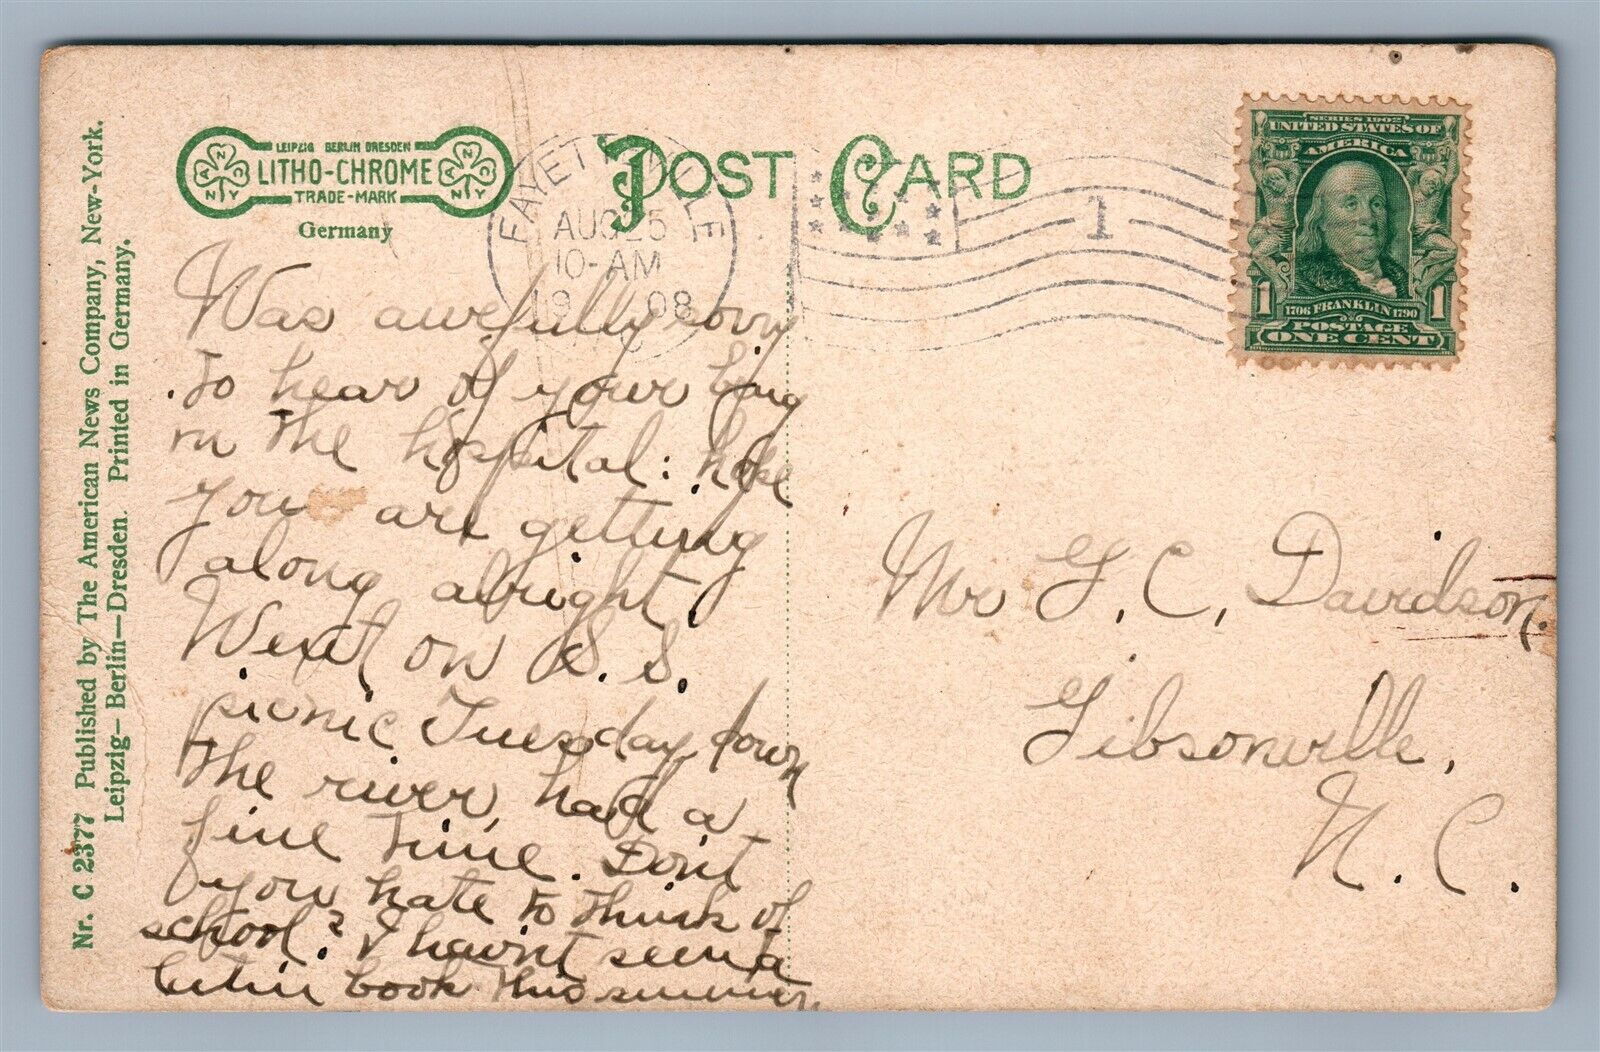 Nr. C 2377 Published by The American News Company, New-York.
Leipzig— Berlin—Dresden. Printed in Germany.
LEIPZIG BERLIN DRESDEN
LITHO-CHROME
TRADE-MARK
Germany
POST CARD
FAYETTEVILLE
AUG 5
10-AM
1908
1
SERIES 1902
UNITED STATES OF
AMERICA
1 1706 FRANKLIN 1790 1
POSTAGE
ONE CENT
Was awefully sorry
to hear of your being
in the hospital: hope
you are getting
along alright.
Went on S. S.
picnic Tuesday, down
the river, had a
fine time. Don't
you hate to think of
school? I havn't seen a
Latin book this summer.
Mr G. C. Davidson.
Gibsonville,
N. C.